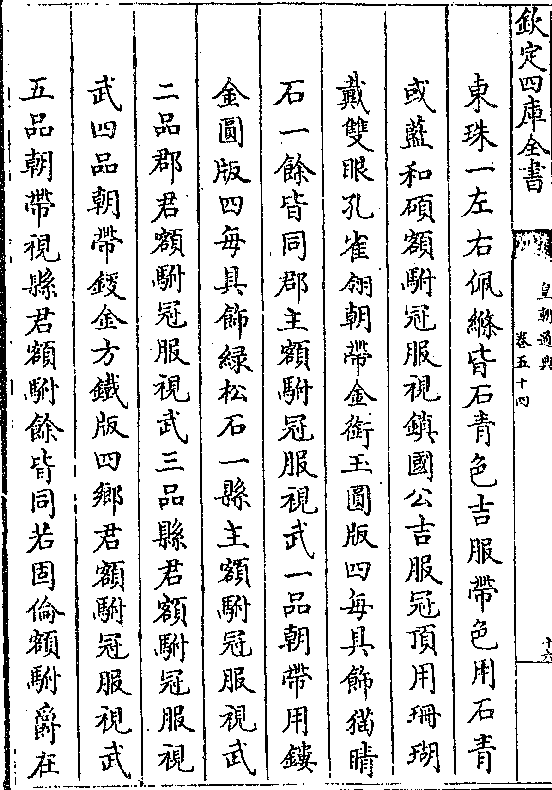 欽定四庫全書
皇朝通典
卷五十四
十六
東珠一左右佩絛皆石青色吉服帶色用石青
或藍和碩額駙冠服視鎮國公吉服冠頂用珊瑚
戴雙眼孔雀翎朝帶金銜玉圓版四每具飾猫睛
石一餘皆同郡主額駙冠服視武一品朝帶用鏤
金圓版四每具飾綠松石一縣主額駙冠服視武
二品郡君額駙冠服視武三品縣君額駙冠服視
武四品朝帶鋄金方鐵版四鄉君額駙冠服視武
五品朝帶視縣君額駙餘皆同若固倫額駙爵在